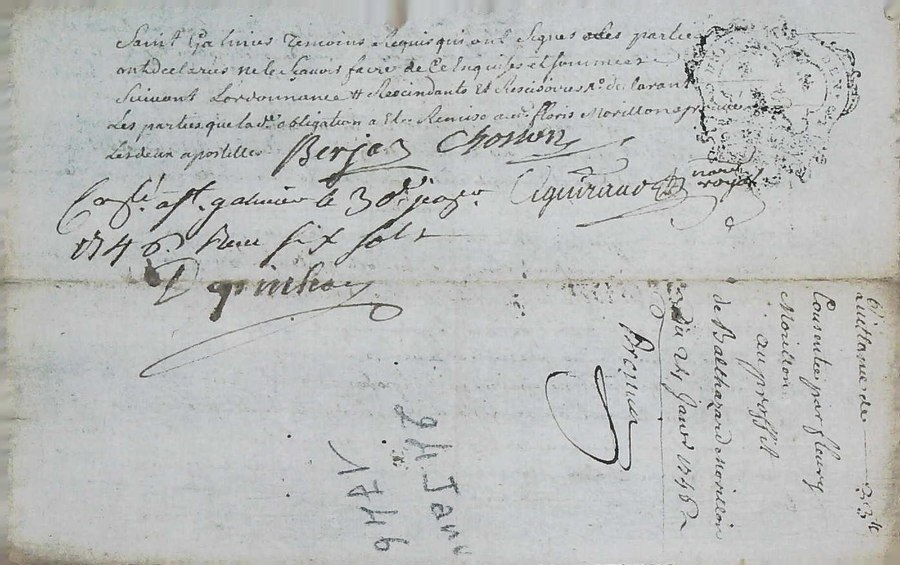 Saint Galmier temoins Requis qui ont Signes et les partie
ont declarés ne le scavoir faire de ce Enquises et sommées
Suivant Lordonnance # Rescindants Et Rescisoires
Les parties que lad. obligation a Ete Remise aud. floris Morillon
Les deux apostilles
Berjon Chosson
Eiguiraud
nore royal
Conlé. a st. galmier le 30e. janvr
1746 Reçu six sols
Quittance de 33lt
Consentie par fleury
Morillon
au proffit
de Balthazard Morillon
du 24 Janvr 1746
24 Janv
1746